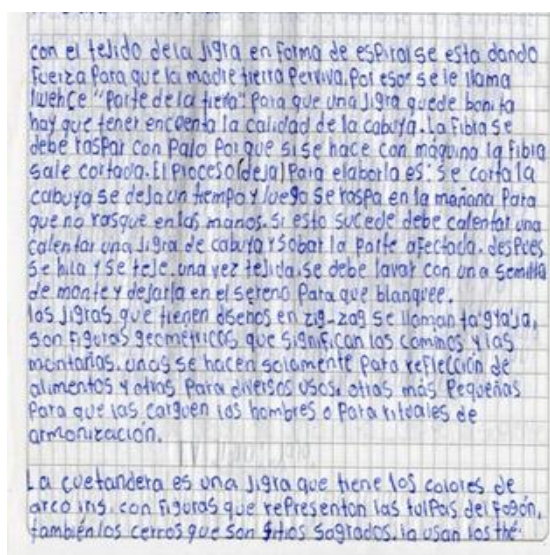 con el tejido dela Jigra en forma de espiral se esta dando
fuerza para que la madre tierra perviva. Por eso se le llama
Iwehce "Parte de la tierra" Para que una Jigra quede bonita
hay que tener encuenta la calidad de la cabuya. La fibra se
debe raspar con Palo Porque si se hace con máquina la fibra
sale cortada. El Proceso (deja) Para elaborla es: se corta la
cabuya se deja un tiempo y luego se raspa en la mañana Para
que no rasque en las manos. si esto sucede debe calentar una
calentar una Jigra de cabuya y sobar la parte afectada. despces
se hila y se teje. una vez tejida, se debe lavar con una semilla
de monte y dejarla en el sereno Para que blanquee.
las Jigras que tienen dseños en zig-zag se llaman
son Figuras geométricas que significan los caminos y las
montañas. unas se hacen solamente Para reflección de
alimentos y otras Para diversos usos, otras más Pequeñas
Para que las carguen los hombres o Para rituales de
armonización.
La cuetandera es una Jigra que tiene los colores de
arco iris. con Figuras que representan las tulpas del Fogón,
también los cerros que son sitios sagrados. la usan los thê